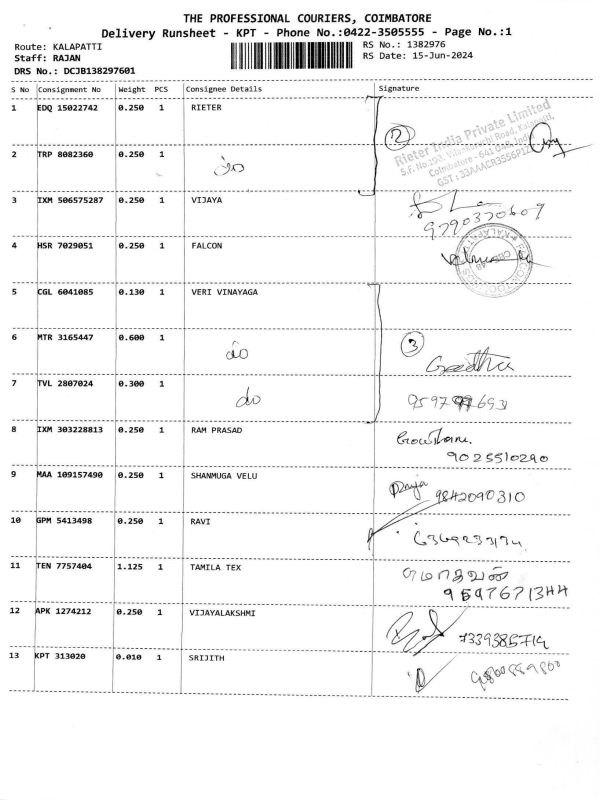 THE PROFESSIONAL COURIERS, COIMBATORE
Delivery Runsheet - KPT - Phone No.:0422-3505555 - Page No.:1
Route: KALAPATTI
RS No.: 1382976
Staff: RAJAN
RS Date: 15-Jun-2024
DRS No.: DCJB138297601
S No Consignment No Weight PCS Consignee Details Signature
1 EDQ 15022742 0.250 1 RIETER
2
Rieter India Private Limited
2 TRP 8082360 0.250 1
do
3 IXM 506575287 0.250 1 VIJAYA
9790370609
4 HSR 7029051 0.250 1 FALCON
5 CGL 6041085 0.130 1 VERI VINAYAGA
6 MTR 3165447 0.600 1
do
3
Geetha
7 TVL 2807024 0.300 1
do
8 IXM 303228813 0.250 1 RAM PRASAD
Gowthami
9025510290
9 MAA 109157490 0.250 1 SHANMUGA VELU
9842090310
10 GPM 5413498 0.250 1 RAVI
11 TEN 7757404 1.125 1 TAMILA TEX
12 APK 1274212 0.250 1 VIJAYALAKSHMI
13 KPT 313020 0.010 1 SRIJITH